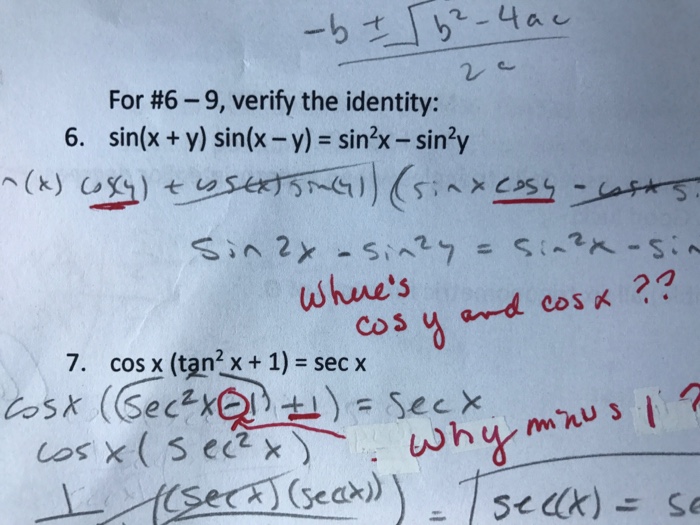 -b ± √b² - 4ac
2a
For #6 – 9, verify the identity:
6. sin(x + y) sin(x – y) = sin²x – sin²y
n(x) cos(y) + cos(x) sin(y)) (sin x cos y - cos x s
sin 2x - sin²y = sin²x - sin
Where's
cos y and cos x ??
7. cos x (tan² x + 1) = sec x
cosx ((sec²x - 1) + 1) = sec x
Why minus 1?
cos x ( sec² x )
1 ((secx)(secx)) = sec(x) = se